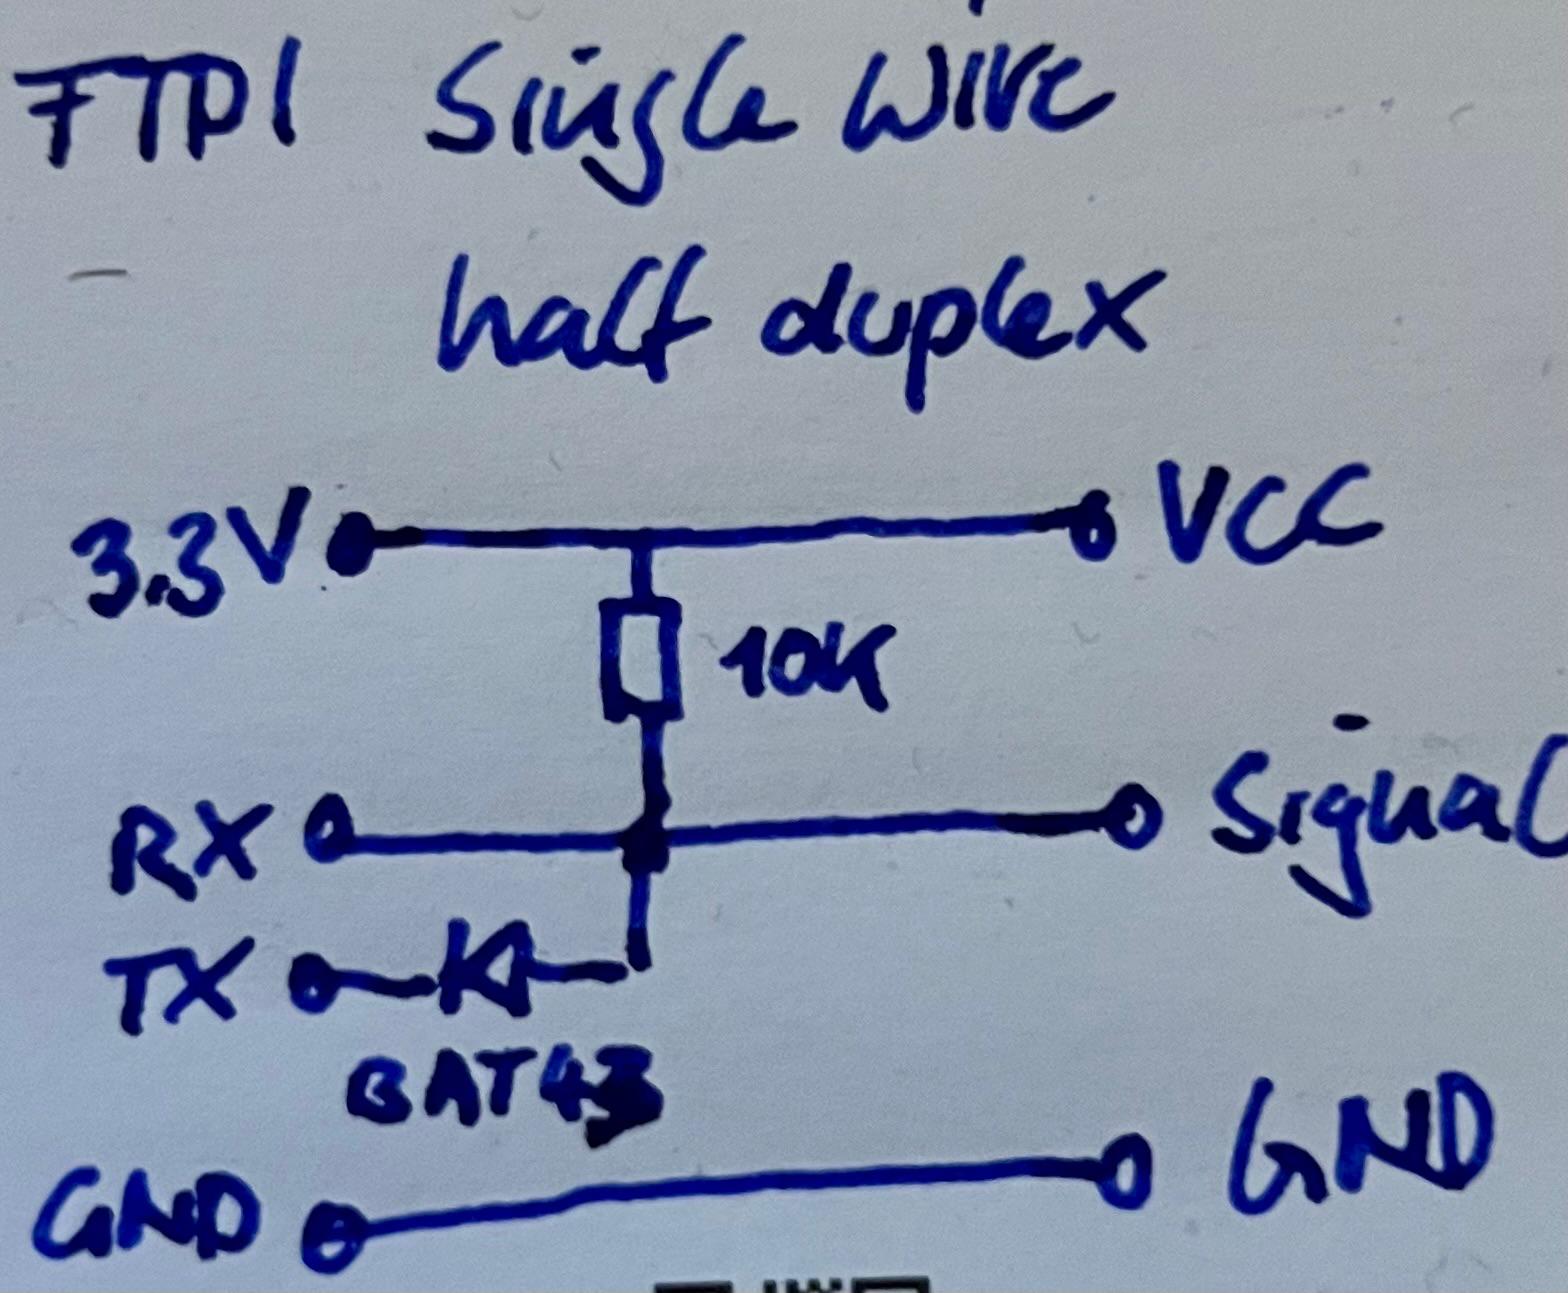 FTDI Single Wire
half duplex
3.3V VCC
10K
RX Signal
TX
BAT43
GND GND